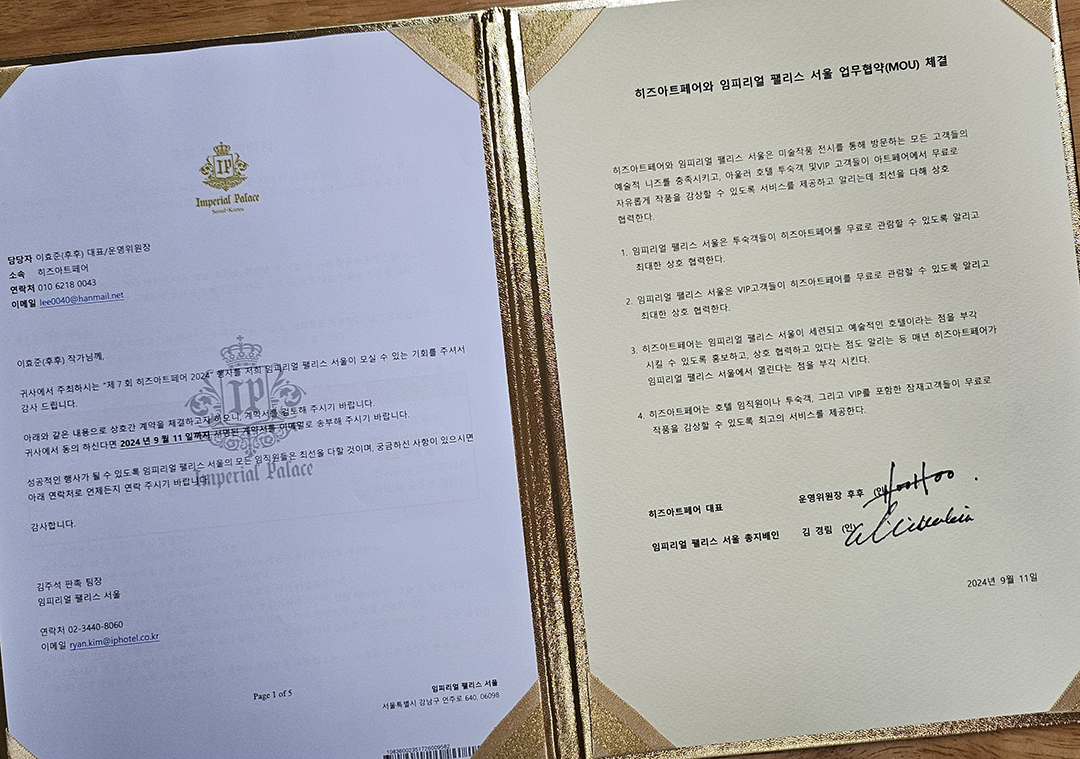 IP
Imperial Palace
Seoul•Korea
담당자 이효준(후후) 대표/운영위원장
소속 히즈아트페어
연락처 010 6218 0043
이메일 lee0040@hanmail.net
이효준(후후) 작가님께,
귀사에서 주최하시는 "제 7 회 히즈아트페어 2024" 행사를 저희 임피리얼 팰리스 서울이 모실 수 있는 기회를 주셔서
감사 드립니다.
아래와 같은 내용으로 상호간 계약을 체결하고자 하오니, 계약서를 검토해 주시기 바랍니다.
귀사에서 동의 하신다면 2024 년 9 월 11 일까지 서명된 계약서를 이메일로 송부해 주시기 바랍니다.
성공적인 행사가 될 수 있도록 임피리얼 팰리스 서울의 모든 임직원들은 최선을 다할 것이며, 궁금하신 사항이 있으시면
아래 연락처로 언제든지 연락 주시기 바랍니다.
감사합니다.
IP
Imperial Palace
김주석 판촉 팀장
임피리얼 팰리스 서울
연락처 02-3440-8060
이메일 ryan.kim@iphotel.co.kr
Page 1 of 5
임피리얼 팰리스 서울
서울특별시 강남구 언주로 640, 06098
히즈아트페어와 임피리얼 팰리스 서울 업무협약(MOU) 체결
히즈아트페어와 임피리얼 팰리스 서울은 미술작품 전시를 통해 방문하는 모든 고객들의
예술적 니즈를 충족시키고, 아울러 호텔 투숙객 및VIP 고객들이 아트페어에서 무료로
자유롭게 작품을 감상할 수 있도록 서비스를 제공하고 알리는데 최선을 다해 상호
협력한다.
1. 임피리얼 팰리스 서울은 투숙객들이 히즈아트페어를 무료로 관람할 수 있도록 알리고
최대한 상호 협력한다.
2. 임피리얼 팰리스 서울은 VIP고객들이 히즈아트페어를 무료로 관람할 수 있도록 알리고
최대한 상호 협력한다.
3. 히즈아트페어는 임피리얼 팰리스 서울이 세련되고 예술적인 호텔이라는 점을 부각
시킬 수 있도록 홍보하고, 상호 협력하고 있다는 점도 알리는 등 매년 히즈아트페어가
임피리얼 팰리스 서울에서 열린다는 점을 부각 시킨다.
4. 히즈아트페어는 호텔 임직원이나 투숙객, 그리고 VIP를 포함한 잠재고객들이 무료로
작품을 감상할 수 있도록 최고의 서비스를 제공한다.
히즈아트페어 대표 운영위원장 후후 (인) HooHoo
임피리얼 팰리스 서울 총지배인 김 경림 (인)
2024년 9월 11일